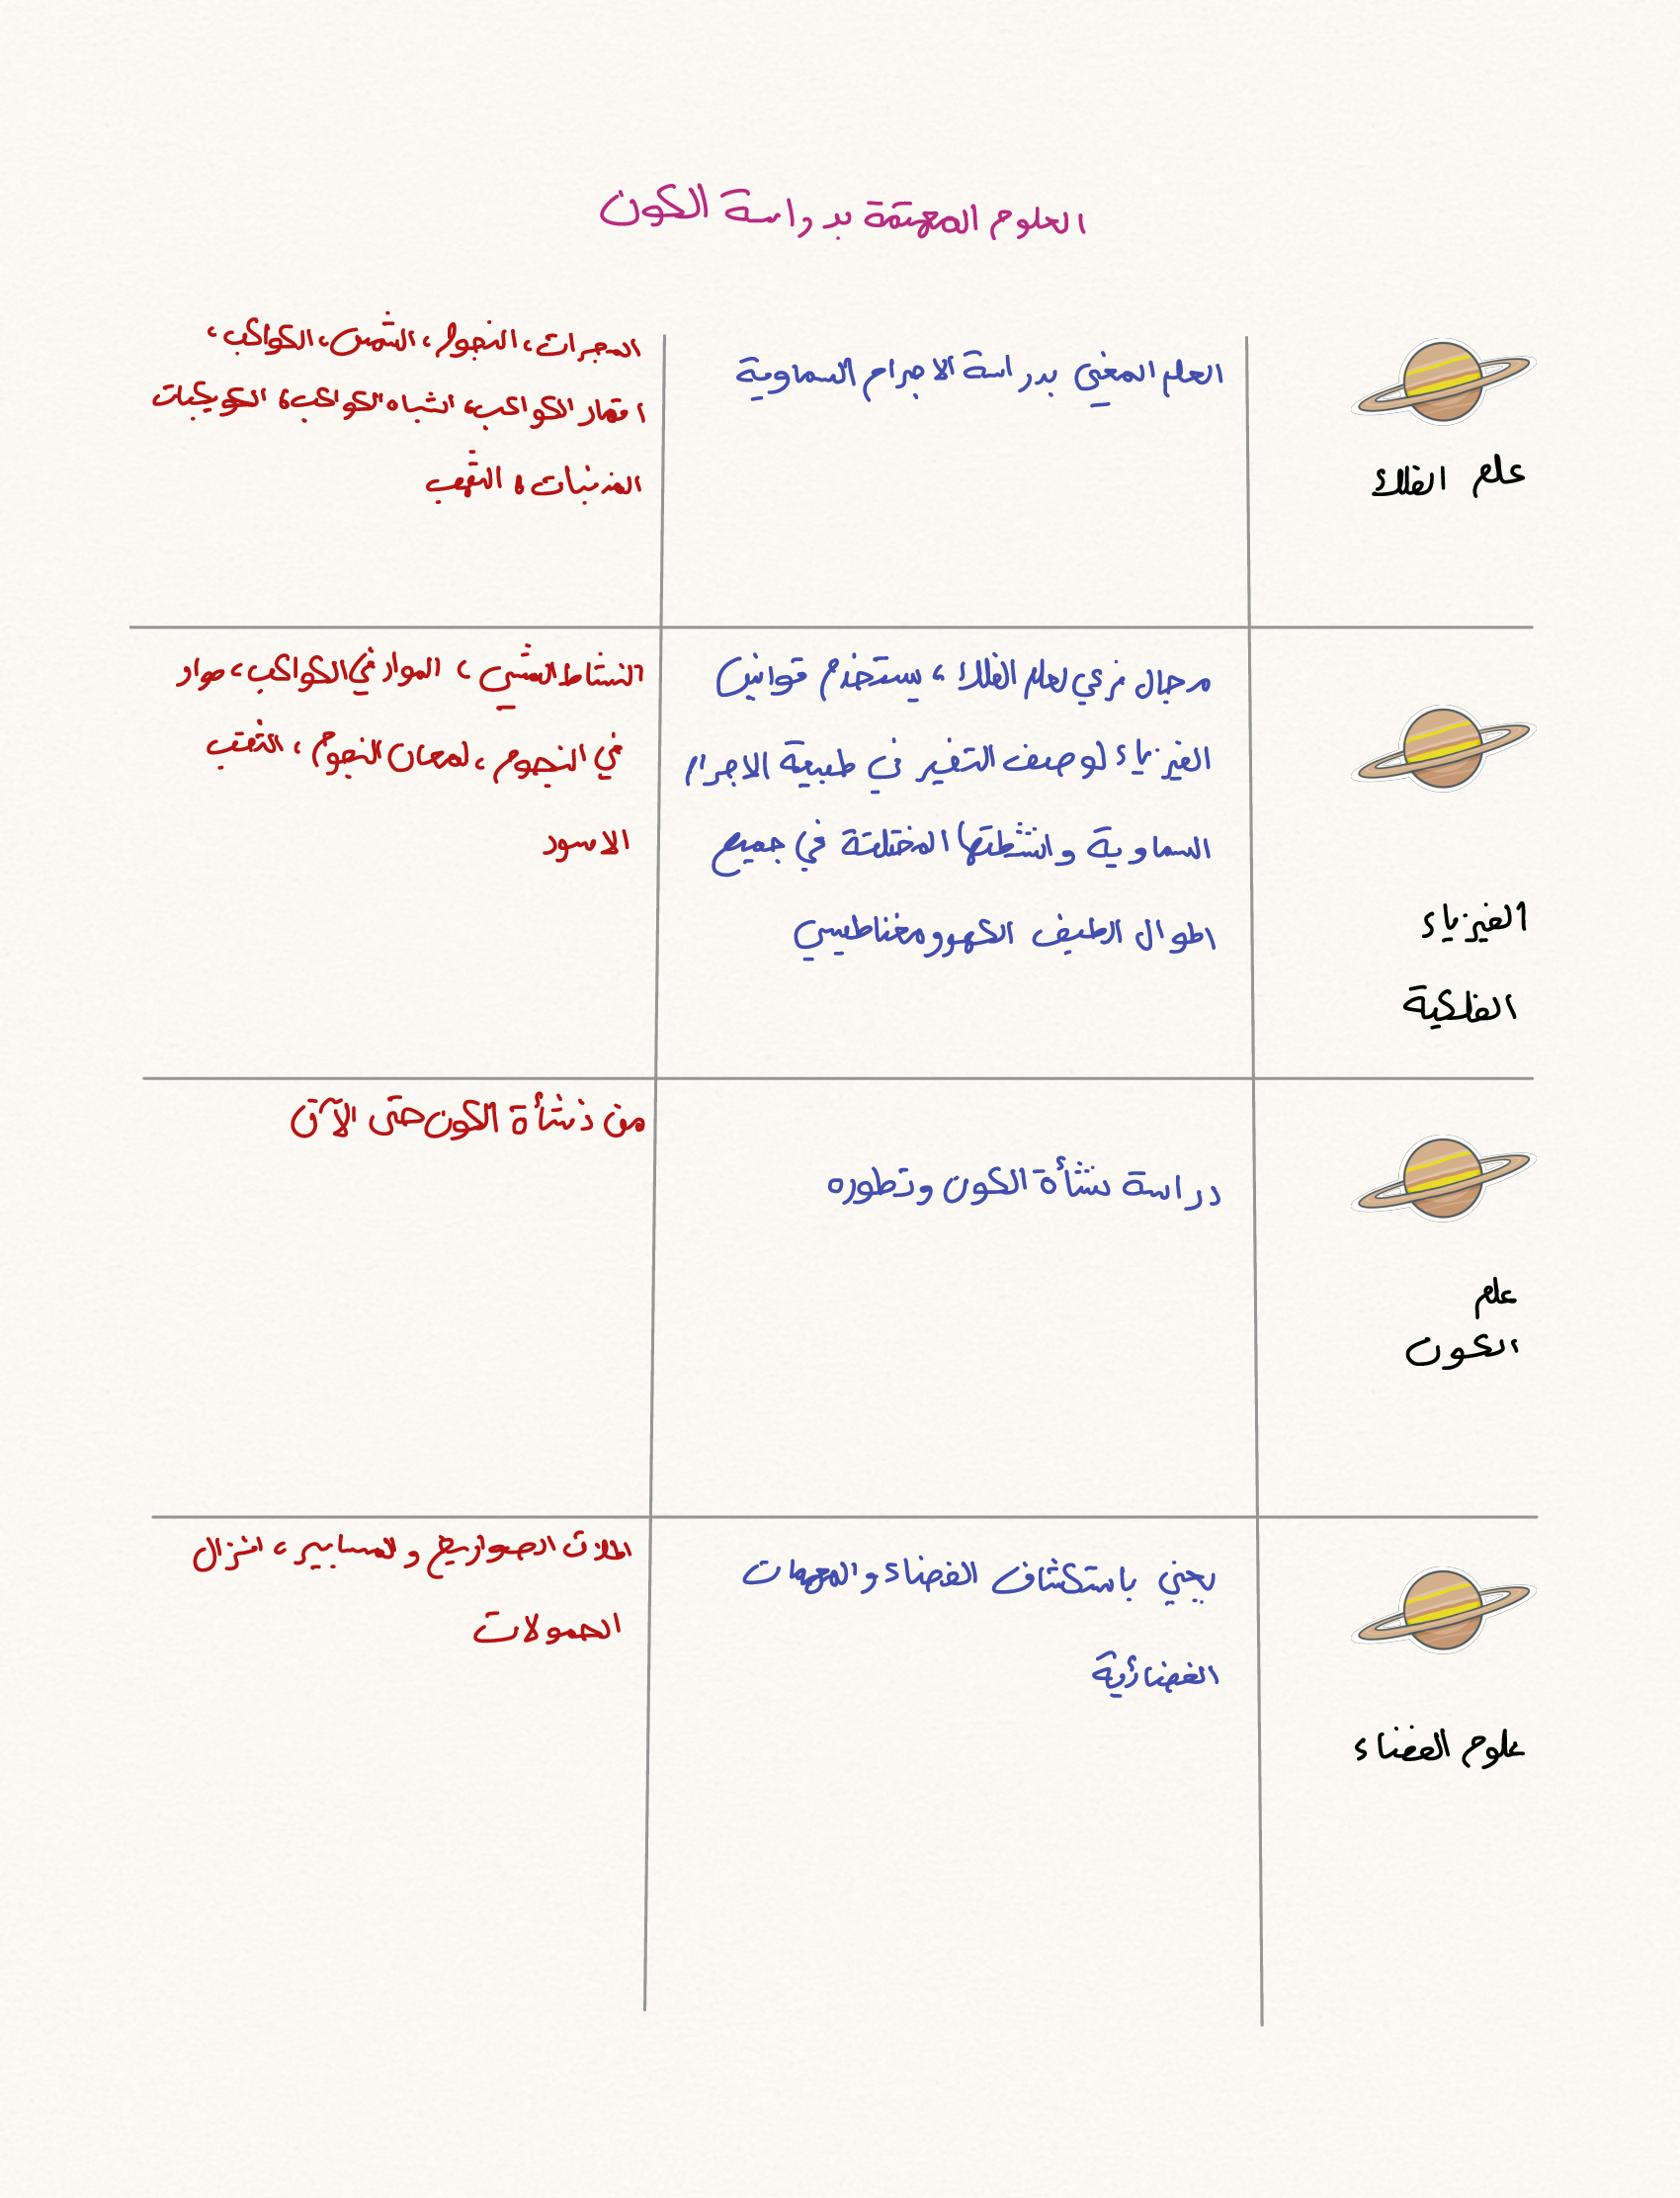 العلوم المهتمة بدراسة الكون
علم الفلك
العلم المعني بدراسة الاجرام السماوية
المجرات، النجوم، الشمس، الكواكب،
اقمار الكواكب، اشباه الكواكب، الكويكبات
المذنبات، الشهب
الفيزياء
الفلكية
مجال فرعي لعلم الفلك، يستخدم قوانين
الفيزياء لوصف التغير في طبيعة الاجرام
السماوية وانشطتها المختلفة في جميع
اطوال الطيف الكهرومغناطيسي
النشاط الشمسي، المواد في الكواكب، مواد
في النجوم، لمعان النجوم، الثقب
الاسود
علم
الكون
دراسة نشأة الكون وتطوره
من نشأة الكون حتى الآن
علوم الفضاء
يعني باستكشاف الفضاء والمهمات
الفضائية
اطلاق الصواريخ والمسابير، انزال
الحمولات